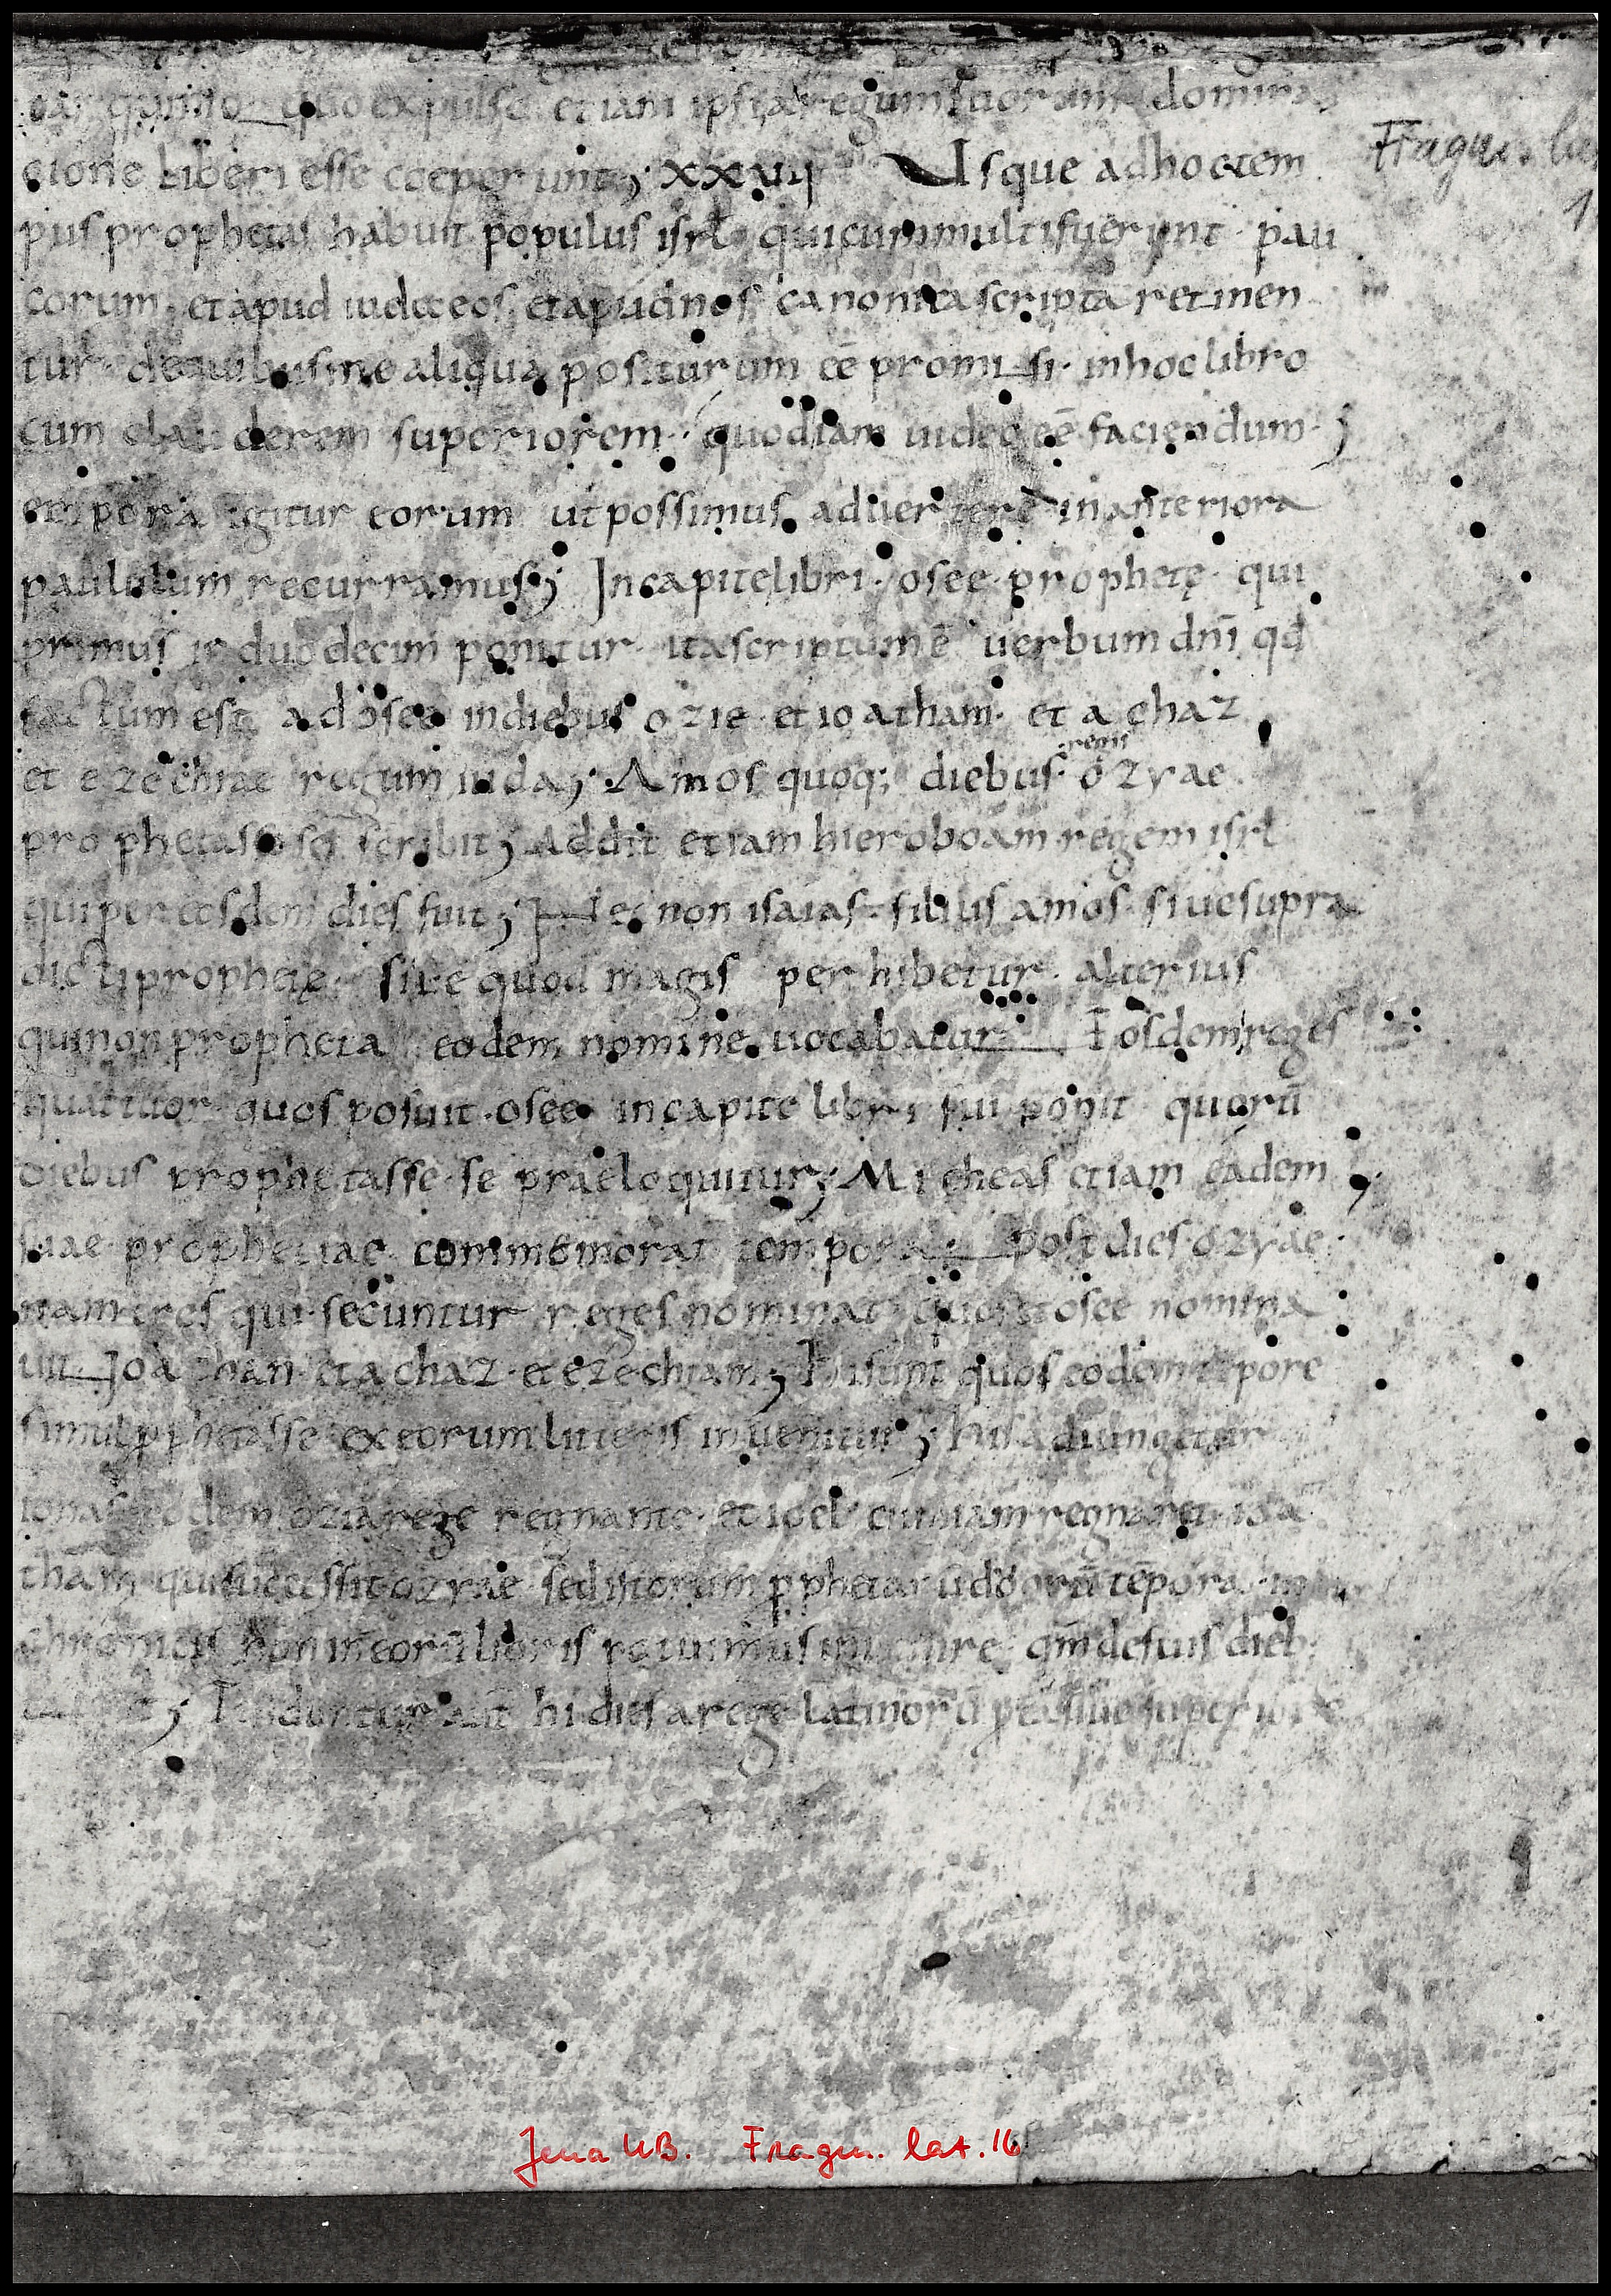 quo expulso etiam ipsi a regum suorum domina
tione liberi esse coeperunt; XXVII Usque ad hoc tem
Fragm. lat.
pus prophetas habuit populus isrl qui cum multi fuerint · pau
16
corum · et apud iudaeos et apud nos canonica scripta retinen
tur · de quibus me aliqua positurum eē promisi · in hoc libro
cum clauderem superiorem · quod iam uideo eē faciendum ·;
tempora igitur eorum ut possimus aduertere in anteriora
paululum recurramus; In capite libri · osee · prophetę · qui
primus in duodecim ponitur · ita scriptum ē uerbum dn̄i qđ
factum est ad osee in diebus ozie · et ioatham · et achaz
et ezechiae regum iuda; Amos quoq; diebus · regis ozyae
prophetasse se scribit; Addit etiam hieroboam regem isrl
qui per eosdem dies fuit; Nec non isaias · filius amos · siue supra
dicti prophetę · siue quod magis perhibetur · alterius
qui non propheta eodem nomine uocabatur Eosdem reges
quattuor · quos posuit · osee in capite libri sui ponit quorū
diebus prophetasse · se praeloquitur; Micheas etiam eadem
suae prophetiae commemorat tempora post dies · ozyae ·
nam tres qui secuntur reges nominat quos et osee nomina
uit Joathan · et achaz · et ezechiam; Hi sunt quos eodem tēpore
simul pphetasse ex eorum litteris inuenitur; his adiungitur
ionas eodem ozia rege regnante · et ioel cum iam regnaret ioa
tham qui successit ozyae · sed istorum pphetarū duorū tēpora in
chronicis non in eorū libris potuimus inuenire · qm̄ de suis dieb
tacent; Tenduntur aūt hi dies a rege latinorū
Jena UB. Fragm. lat. 16